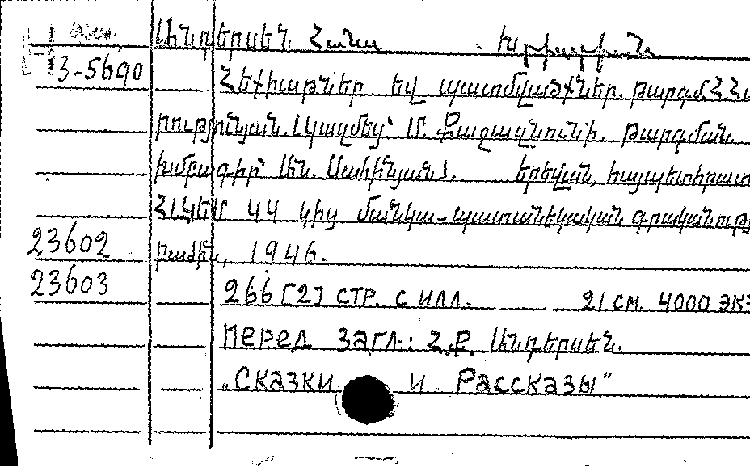 Անդերսեն Հանս Խրիստիան
3-5690 Հեքիաթներ եվ պատմվածքներ. թարգմ. ՀՀ
թությունյան. Կազմեց՝ Մ. Քաջազնունի. թարգման
խմբագիր՝ Ան. Սահինյան]. Երեվան, հայպետհրատ
ՀԼԿԵՄ ԿԿ կից մանկա-պատանեկական գրականությ
23602 բաժին, 1946.
23603 266 [2] стр. с илл. 21 см. 4000 экз
перед загл.: Հ.Ք. Անդերսեն.
„Сказки и Рассказы"